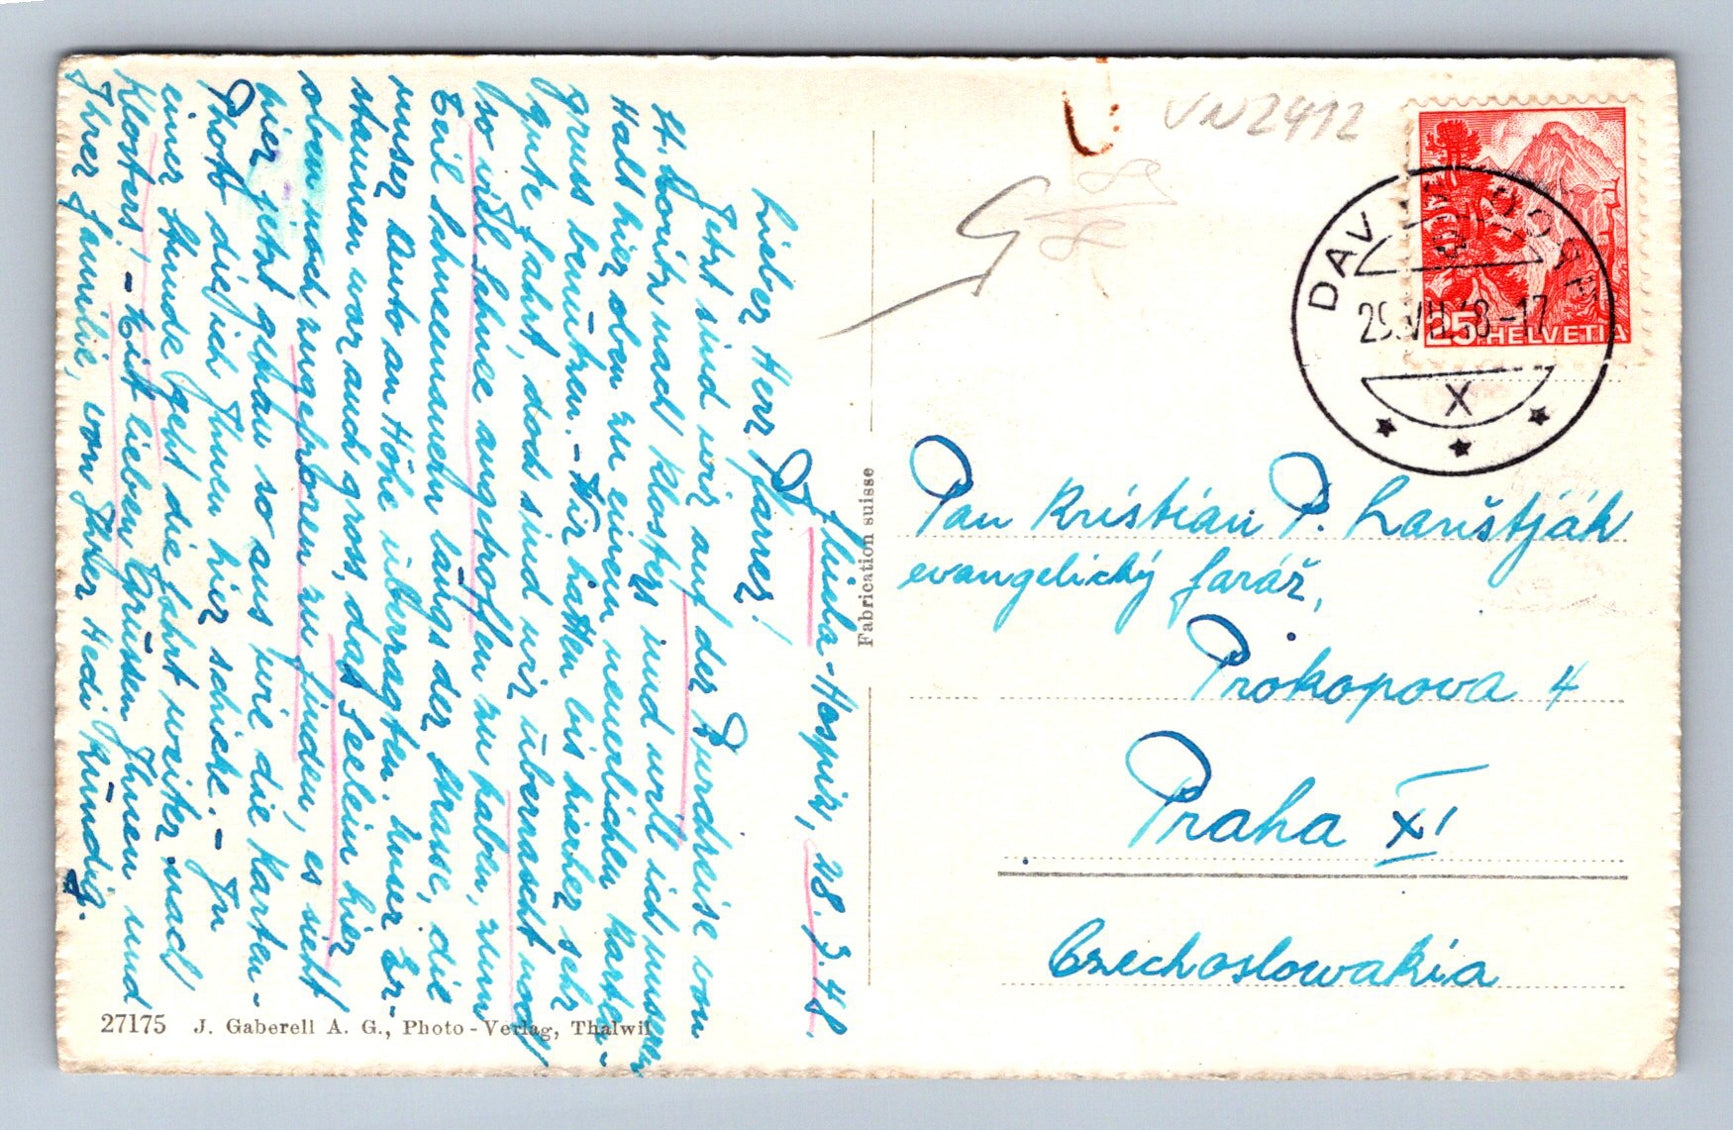 Flüela-Hospiz, 28. 7. 48.
Lieber Herr Pfarrer!
Jetzt sind wir auf der Durchreise von
St. Moritz nach Klosters und will ich unserer
Halt hier oben zu einem neuerlichen Karten-
gruss benützen. - Wir hatten bis hierher sehr
gute Fahrt, doch sind wir überrascht noch
so viel Schnee angetroffen zu haben, zum
Teil Schneemauern längs der Strasse, die
unser Auto an Höhe überragten. Unser Er-
staunen war auch gross, das Seelein hier
oben noch zugefroren zu finden, es sieht
hier jetzt genau so aus wie die Karten-
Photo die ich Ihnen hier schicke. - In
einer Stunde geht die Fahrt weiter nach
Klosters. - Mit lieben Grüssen Ihnen und
Ihrer Familie, von Ihrer Hedi Kündig.
27175 J. Gaberell A. G., Photo-Verlag, Thalwil
Fabrication suisse
VN2412
25 HELVETIA
DAV
29.VII.48-17
X
Pan Kristián P. Lanštják
evangelický farář,
Prokopova 4
Praha XI
Czechoslowakia